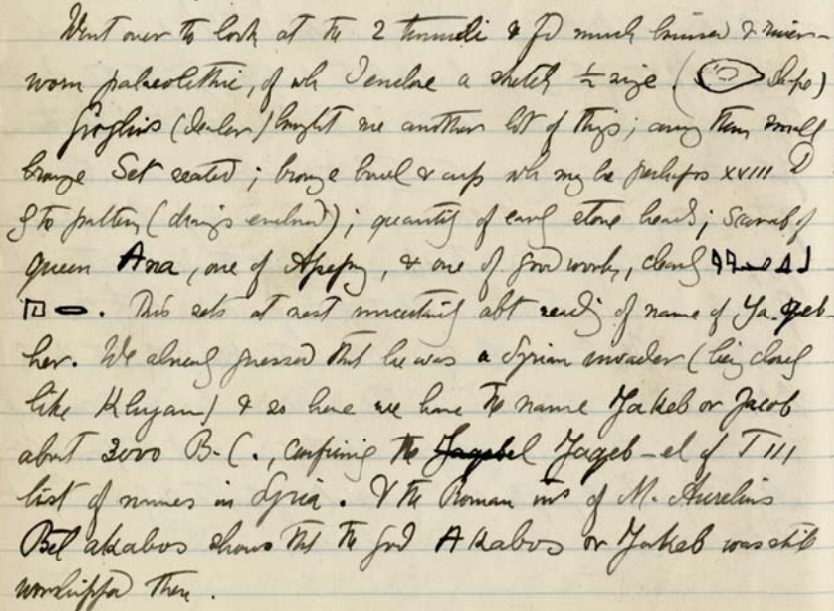 Went over to look at the 2 tumuli & fd much bruised & river-
worn palaeolithic, of wh I enclose a sketch ½ size. ( shape)
(dealer) brought me another lot of things; among them small
bronze Set seated; bronze bowl & cups wh may be perhaps XVIII D
(drawings enclosed); quantity of early stone beads; Scarab of
queen Ana, one of Apepy, & one of good work, clearly
. This sets at rest uncertainty abt reading of name of Ya. qeb-
her. We already guessed that he was a Syrian invader (being closely
like Khyan) & so here we have the name Yakeb or Jacob
about 3000 B.C., confirming the Yaqeb-el of T III
list of names in Syria. & the Roman ins of M. Aurelius
Bel akabos shows that the god Akabos or Yakeb was still
worshipped there.